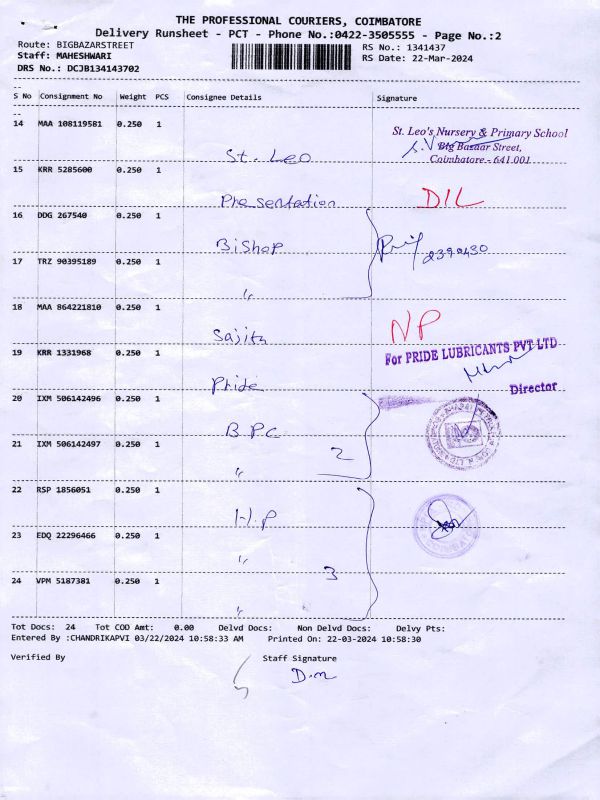 THE PROFESSIONAL COURIERS, COIMBATORE
Delivery Runsheet - PCT - Phone No.:0422-3505555 - Page No.:2
Route: BIGBAZARSTREET
RS No.: 1341437
Staff: MAHESHWARI
RS Date: 22-Mar-2024
DRS No.: DCJB134143702
S No Consignment No Weight PCS Consignee Details Signature
14 MAA 108119581 0.250 1
St. Leo's Nursery & Primary School
Big Bazaar Street,
Coimbatore - 641 001
S.V
St. Leo
15 KRR 5285600 0.250 1
Presentation DIL
16 DDG 267540 0.250 1
Bishop
17 TRZ 90395189 0.250 1
"
18 MAA 864221810 0.250 1
Sajitu NP
19 KRR 1331968 0.250 1
For PRIDE LUBRICANTS PVT LTD
Pride
Director
20 IXM 506142496 0.250 1
BPC
21 IXM 506142497 0.250 1
" 2
22 RSP 1856051 0.250 1
H.P
23 EDQ 22296466 0.250 1
"
24 VPM 5187381 0.250 1
3
"
Tot Docs: 24 Tot COD Amt: 0.00 Delvd Docs: Non Delvd Docs: Delvy Pts:
Entered By :CHANDRIKAPVI 03/22/2024 10:58:33 AM Printed On: 22-03-2024 10:58:30
Verified By Staff Signature
D.m